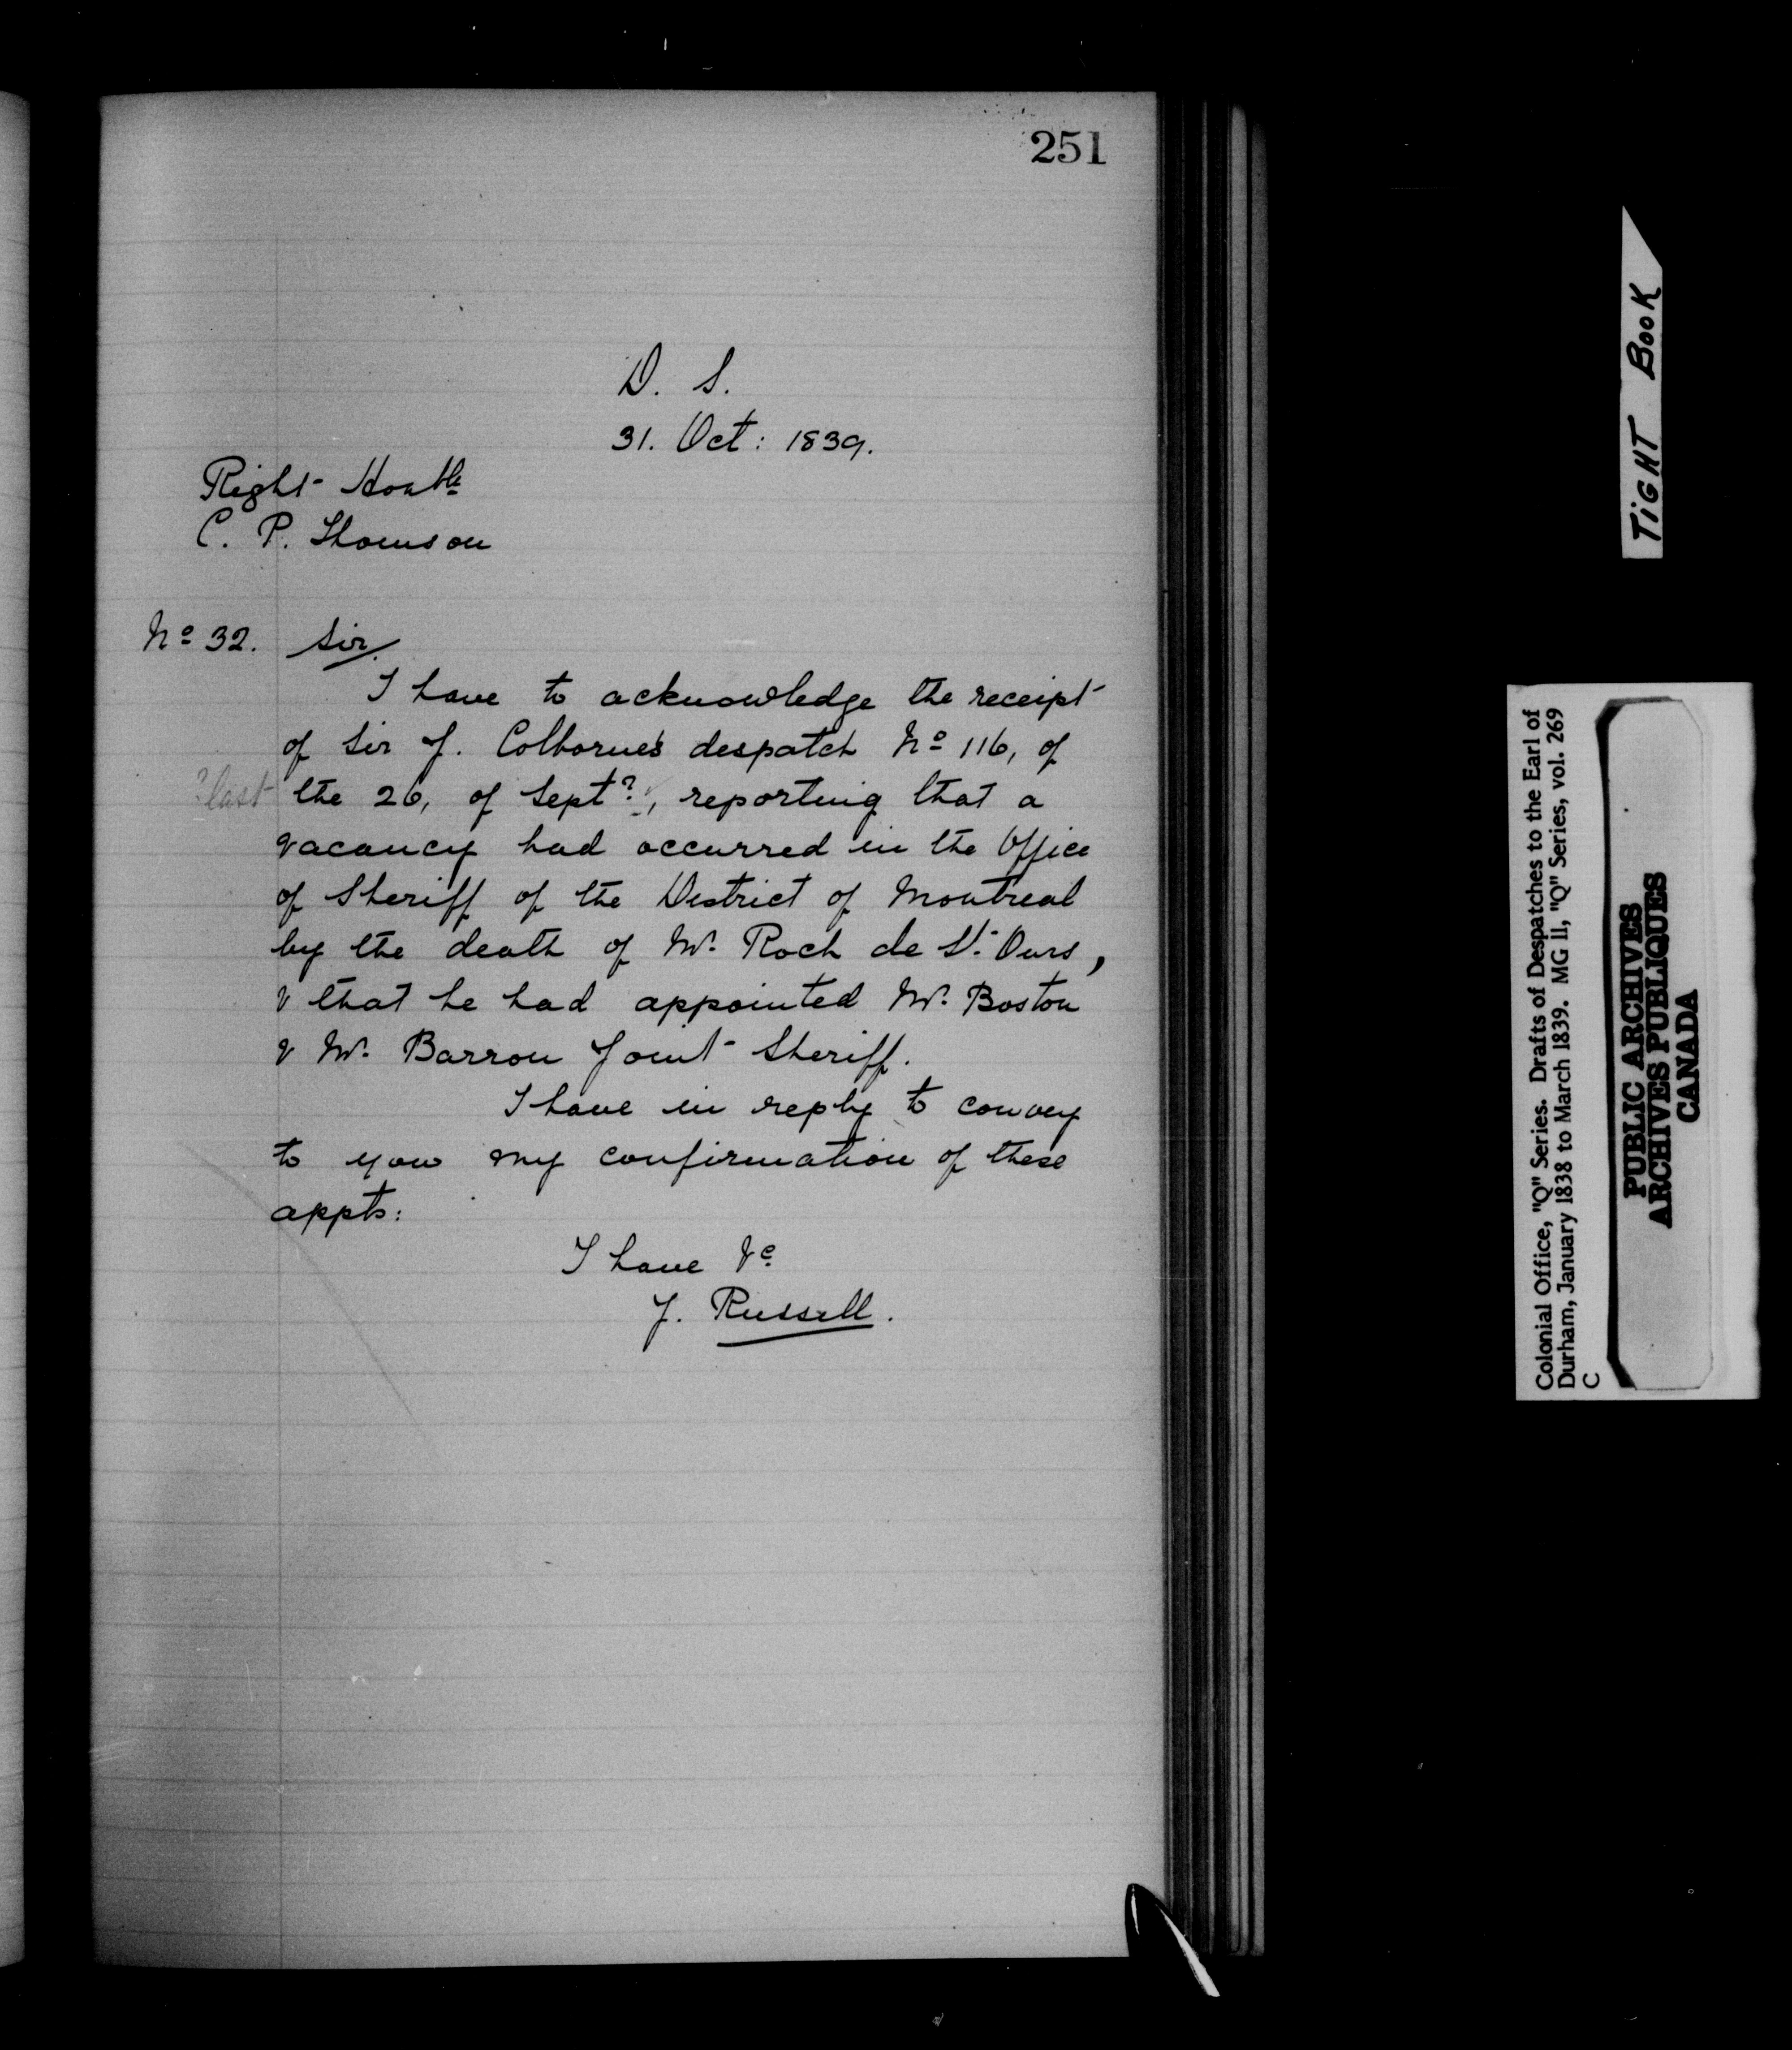 251
D. S.
31. Oct: 1839.
Right Honble
C. P. Thomson
No 32. Sir,
I have to acknowledge the receipt
of Sir J. Colborne's despatch No 116, of
?last the 26, of Sept?, reporting that a
vacancy had occurred in the Office
of Sheriff of the District of Montreal
by the death of Mr. Roch de St. Ours,
& that he had appointed Mr. Boston
& Mr. Barron Joint Sheriff.
I have in reply to convey
to you my confirmation of these
appts:
I have &c
J. Russell.
TIGHT BOOK
Colonial Office, "Q" Series. Drafts of Despatches to the Earl of
Durham, January 1838 to March 1839. MG 11, "Q" Series, vol. 269
C
PUBLIC ARCHIVES
ARCHIVES PUBLIQUES
CANADA